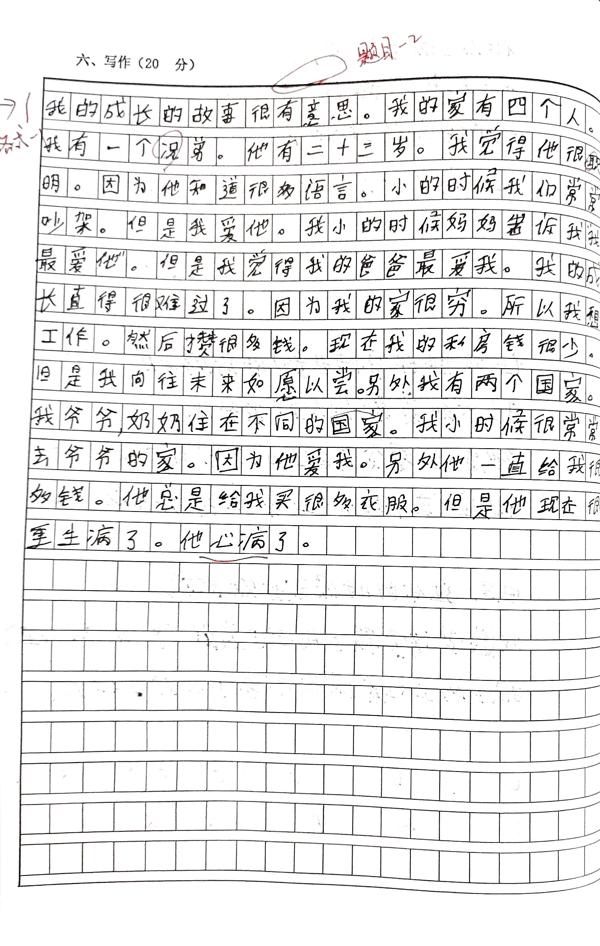 六、写作(20 分)
题目-2
格式-1
我的成长的故事很有意思。我的家有四个人。
我有一个况弟。他有二十三岁。我觉得他很聪
明。因为他知道很多语言。小的时候我们常常
吵架。但是我爱他。我小的时候妈妈告诉我我
最爱他。但是我觉得我的爸爸最爱我。我的成
长直得很难过了。因为我的家很穷。所以我想
工作。然后攒很多钱。现在我的私房钱很少。
但是我向往未来如愿以尝。另外我有两个国家。
我爷爷,奶奶住在不同的国家。我小时候很常常
去爷爷的家。因为他爱我。另外他一直给我很
多钱。他总是给我买很多衣服。但是他现在很
重生病了。他心病了。